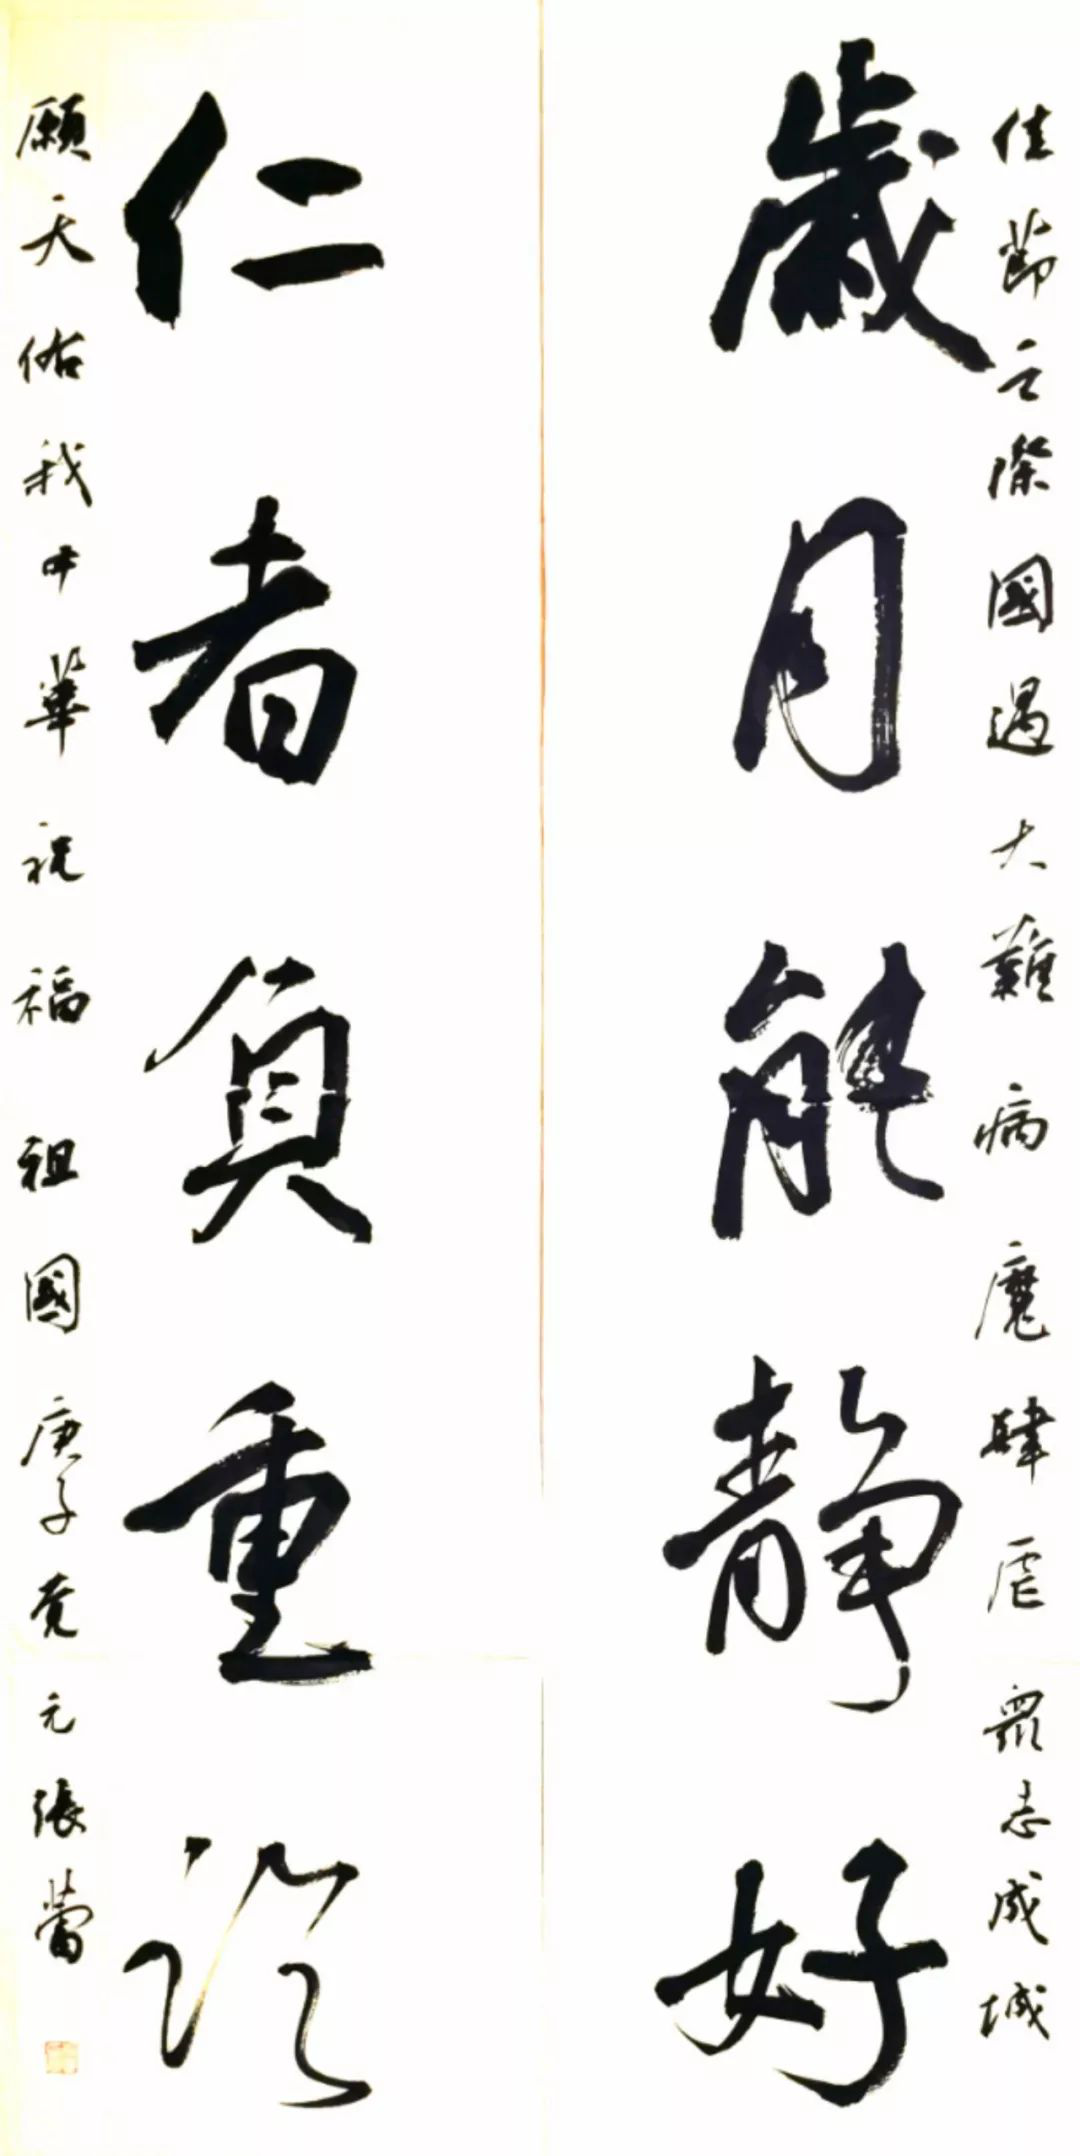 佳節之際國遇大難病魔肆虐眾志成城
歲月能静好
仁者負重
願天佑我中華祝福祖國庚子元張蕾